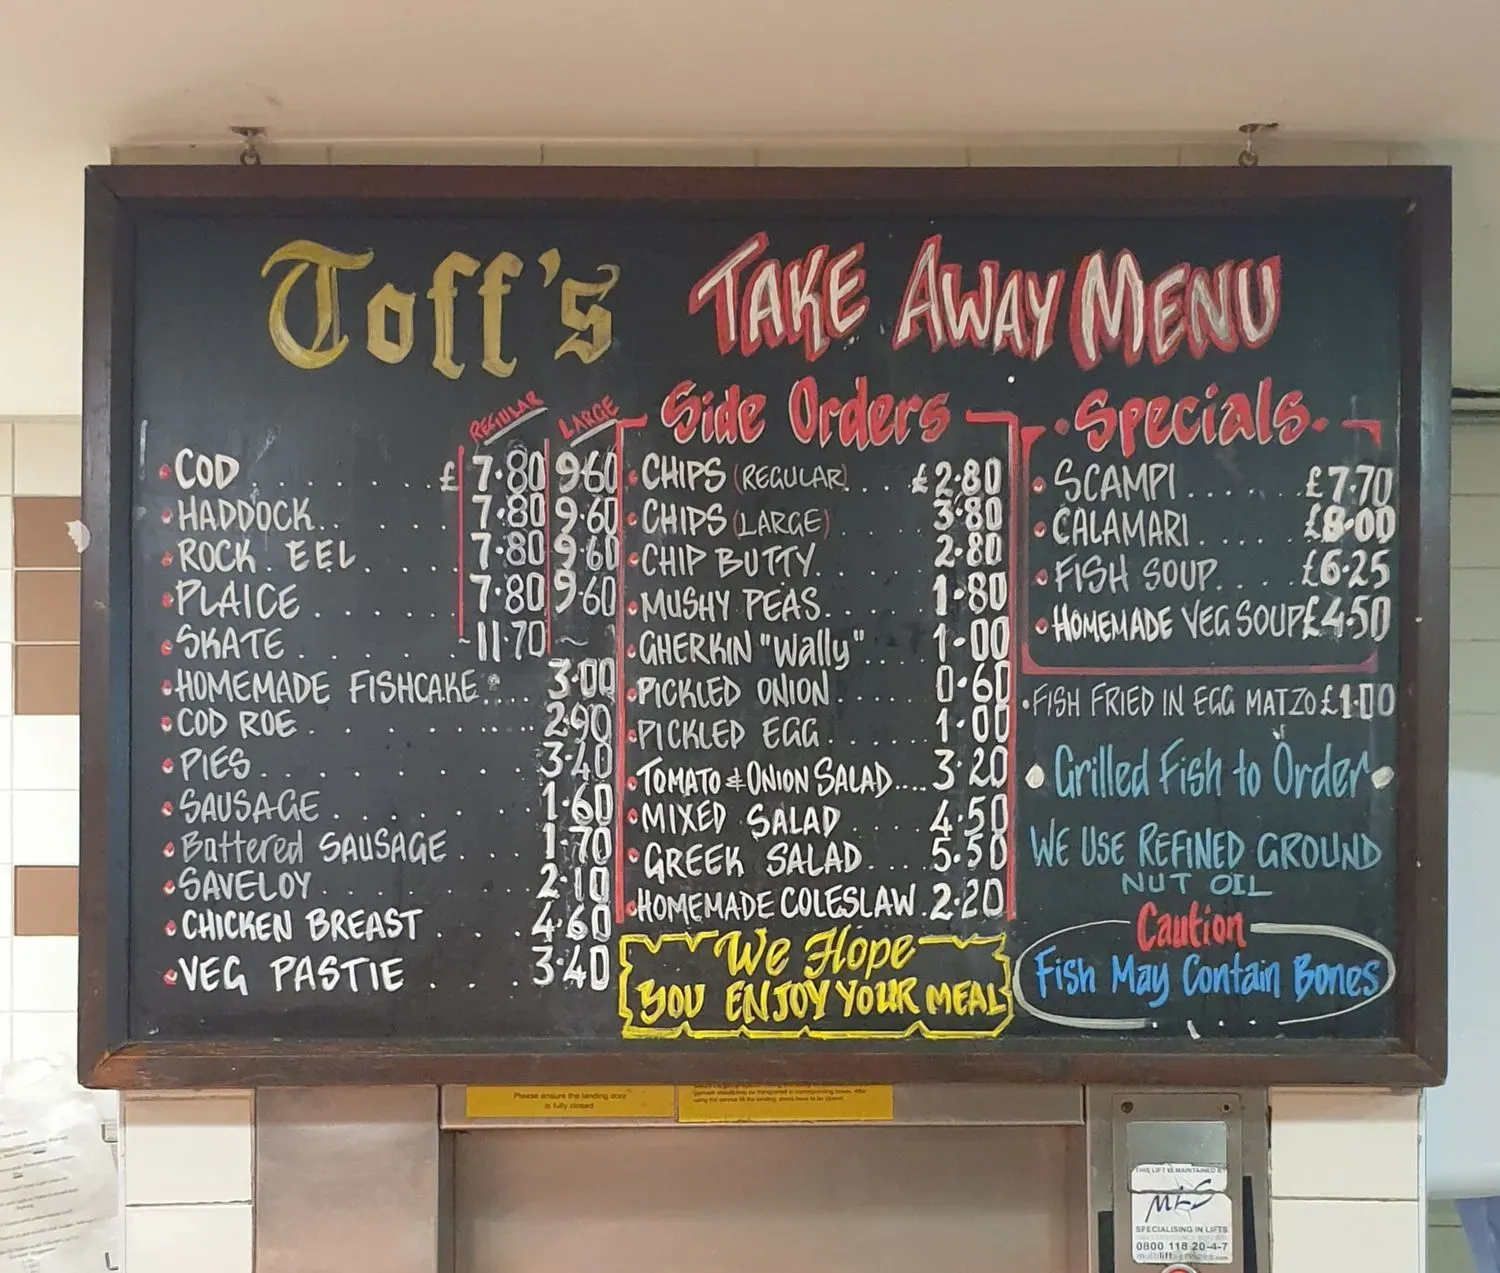 Toff's TAKE AWAY MENU
REGULAR LARGE
COD........£ 7.80 9.60
HADDOCK....... 7.80 9.60
ROCK. EEL..... 7.80 9.60
PLAICE....... 7.80 9.60
SKATE...... ~11.70 ~
HOMEMADE FISHCAKE... 3.00
COD ROE......... 2.90
PIES......... 3.40
SAUSAGE....... 1.60
Battered SAUSAGE... 1.70
SAVELOY....... 2.10
CHICKEN BREAST.... 4.60
VEG PASTIE.... 3.40
Side Orders
CHIPS (REGULAR)...£2.80
CHIPS (LARGE).... 3.80
CHIP BUTTY..... 2.80
MUSHY PEAS..... 1.80
GHERKIN "Wally".... 1.00
PICKLED ONION..... 0.60
PICKLED EGG..... 1.00
TOMATO & ONION SALAD.... 3.20
MIXED SALAD.... 4.50
GREEK SALAD.... 5.50
HOMEMADE COLESLAW.2.20
We Hope
YOU ENJOY YOUR MEAL
Specials.
SCAMPI......£7.70
CALAMARI.....£8.00
FISH SOUP.....£6.25
HOMEMADE VEG SOUP£4.50
FISH FRIED IN EGG MATZO £1.00
Grilled Fish to Order
WE USE REFINED GROUND
NUT OIL
Caution
Fish May Contain Bones
Please ensure the landing door
is fully closed
THIS LIFT IS MAINTAINED BY
MLS
SPECIALISING IN LIFTS
0800 118 20-4-7